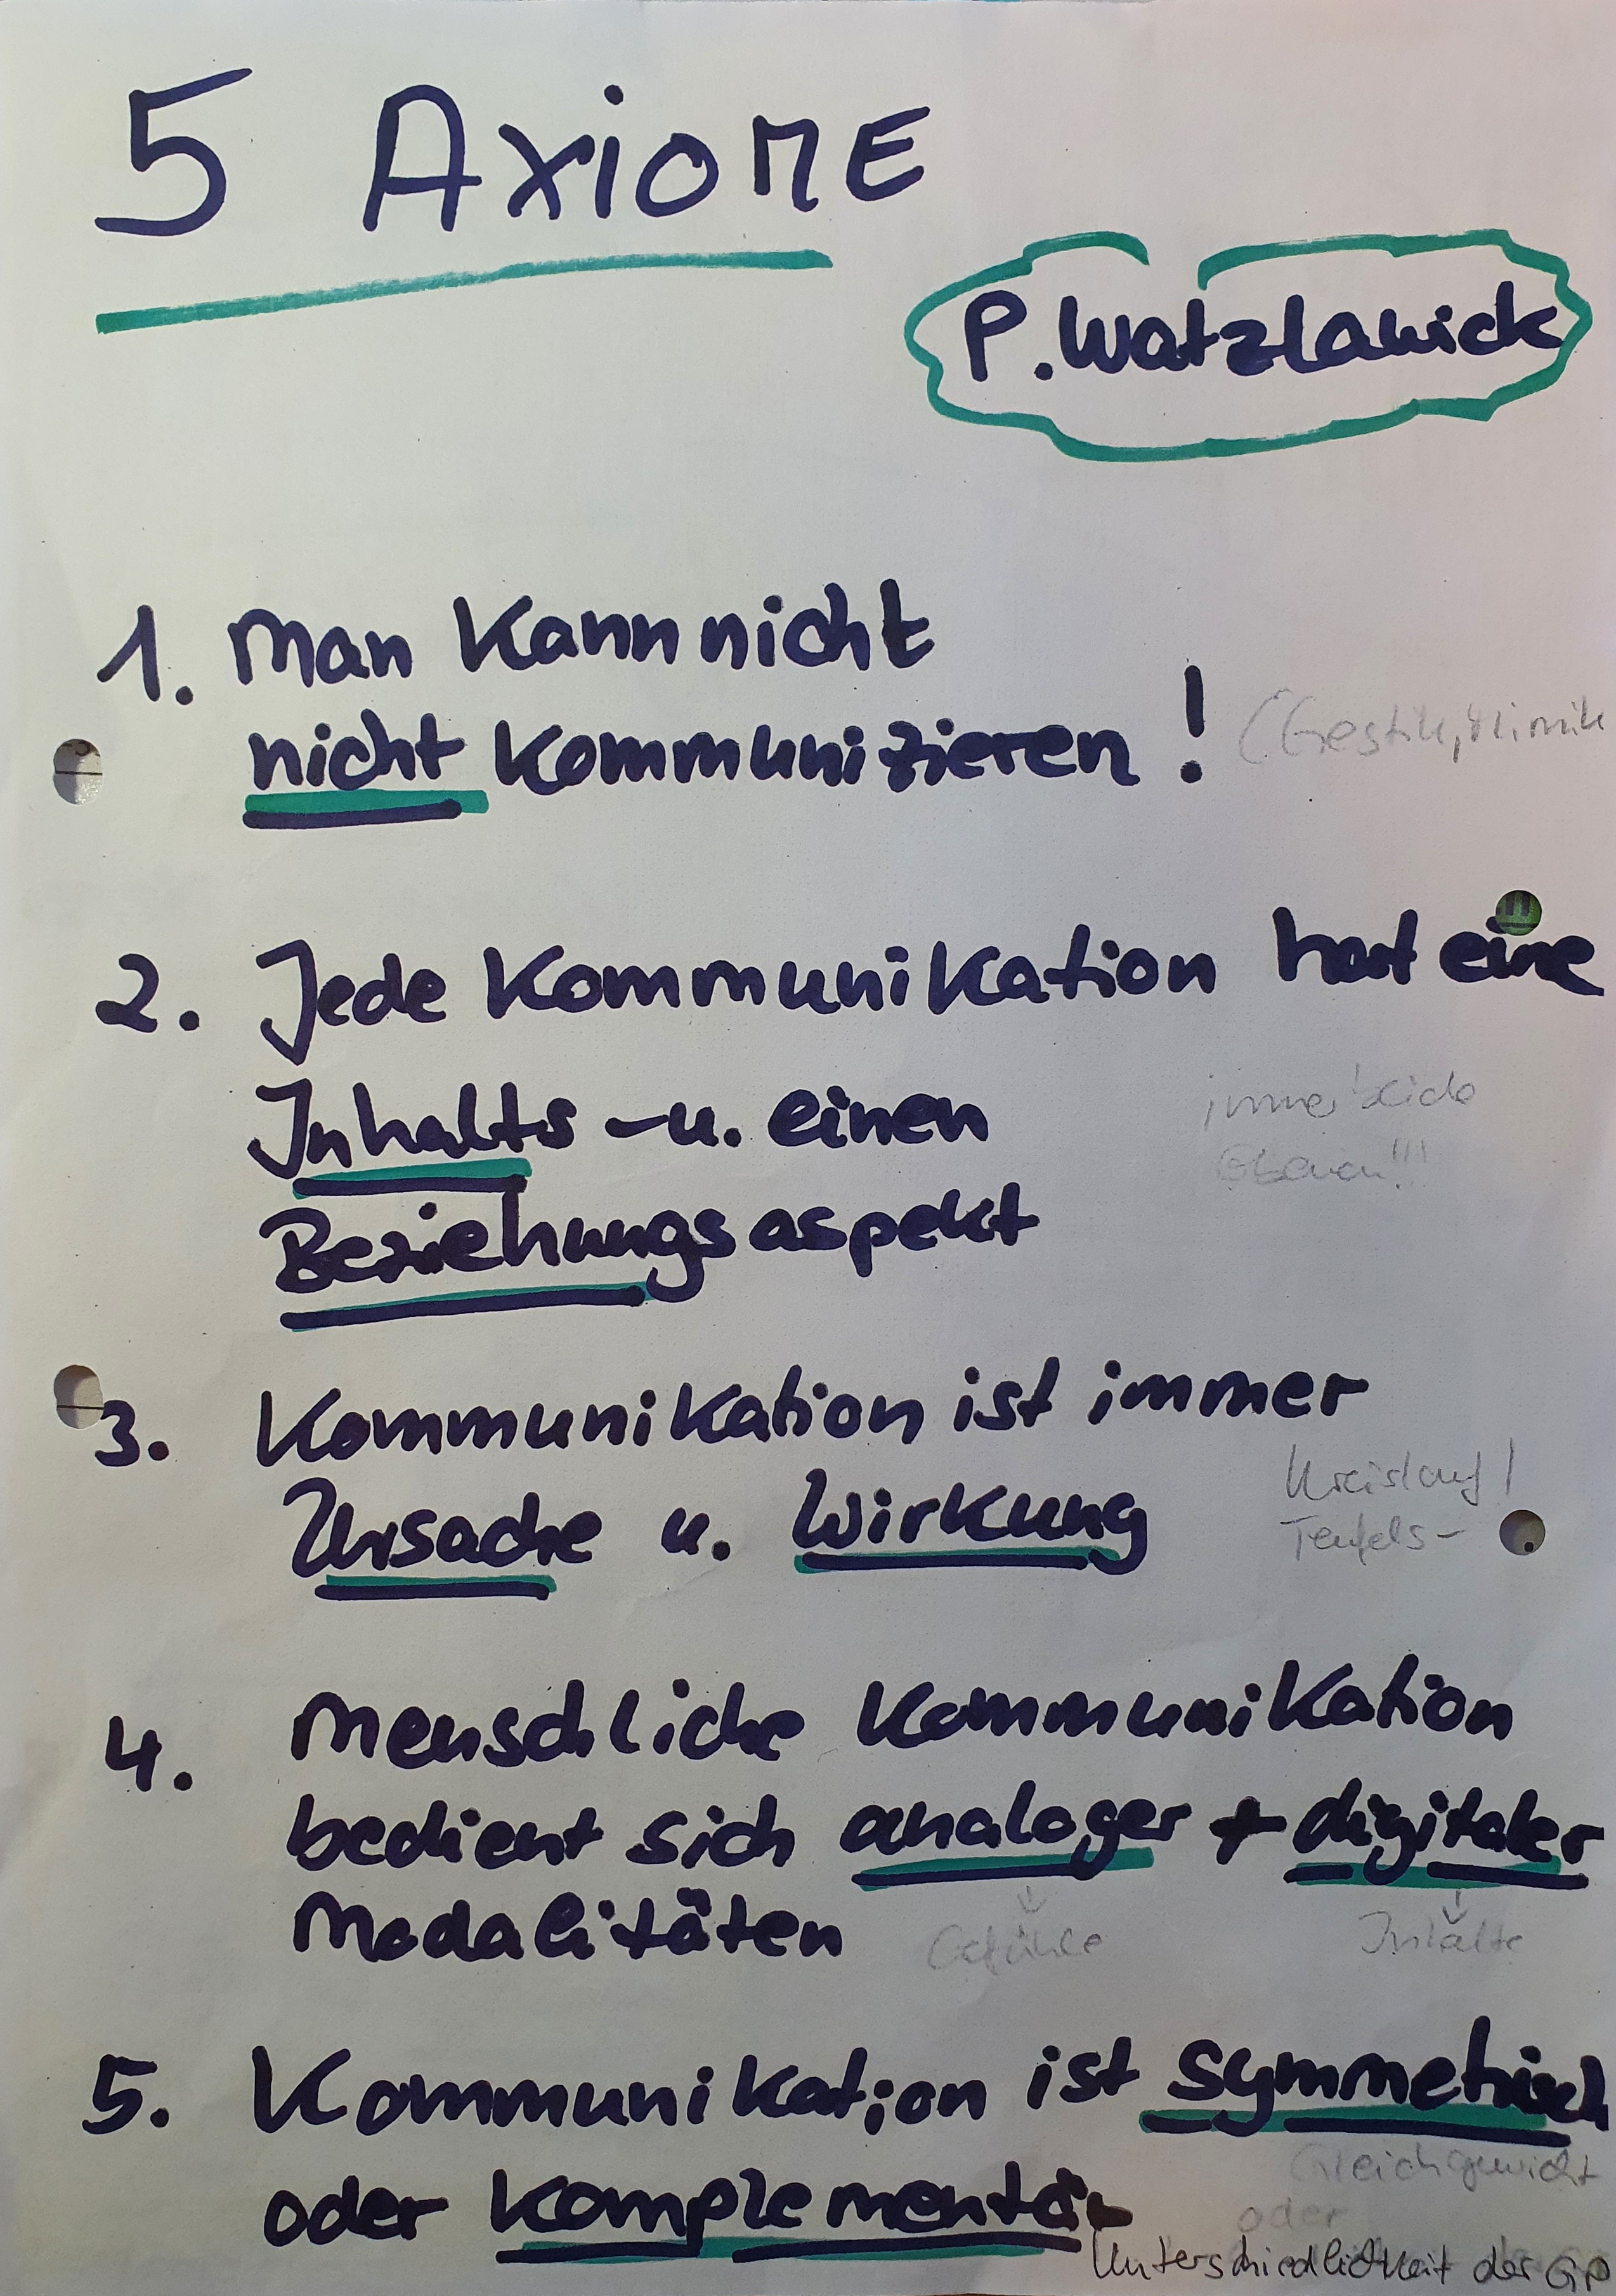 5 AXiOME
P. Watzlawick
1. Man Kann nicht
nicht Kommunizieren! (Gestik, Mimik
2. Jede Kommunikation hat eine
Inhalts - u. einen
immer beide
Ebenen!!!
Beziehungsaspekt
3. Kommunikation ist immer
Ursache u. Wirkung
Kreislauf!
Teufels-
4. Menschliche Kommunikation
bedient sich analoger + digitaler
Modalitäten
Gefühle Inhalte
5. Kommunikation ist symmetrisch
Gleichgewicht
oder Komplementär
oder
Unterschiedlichkeit der GP